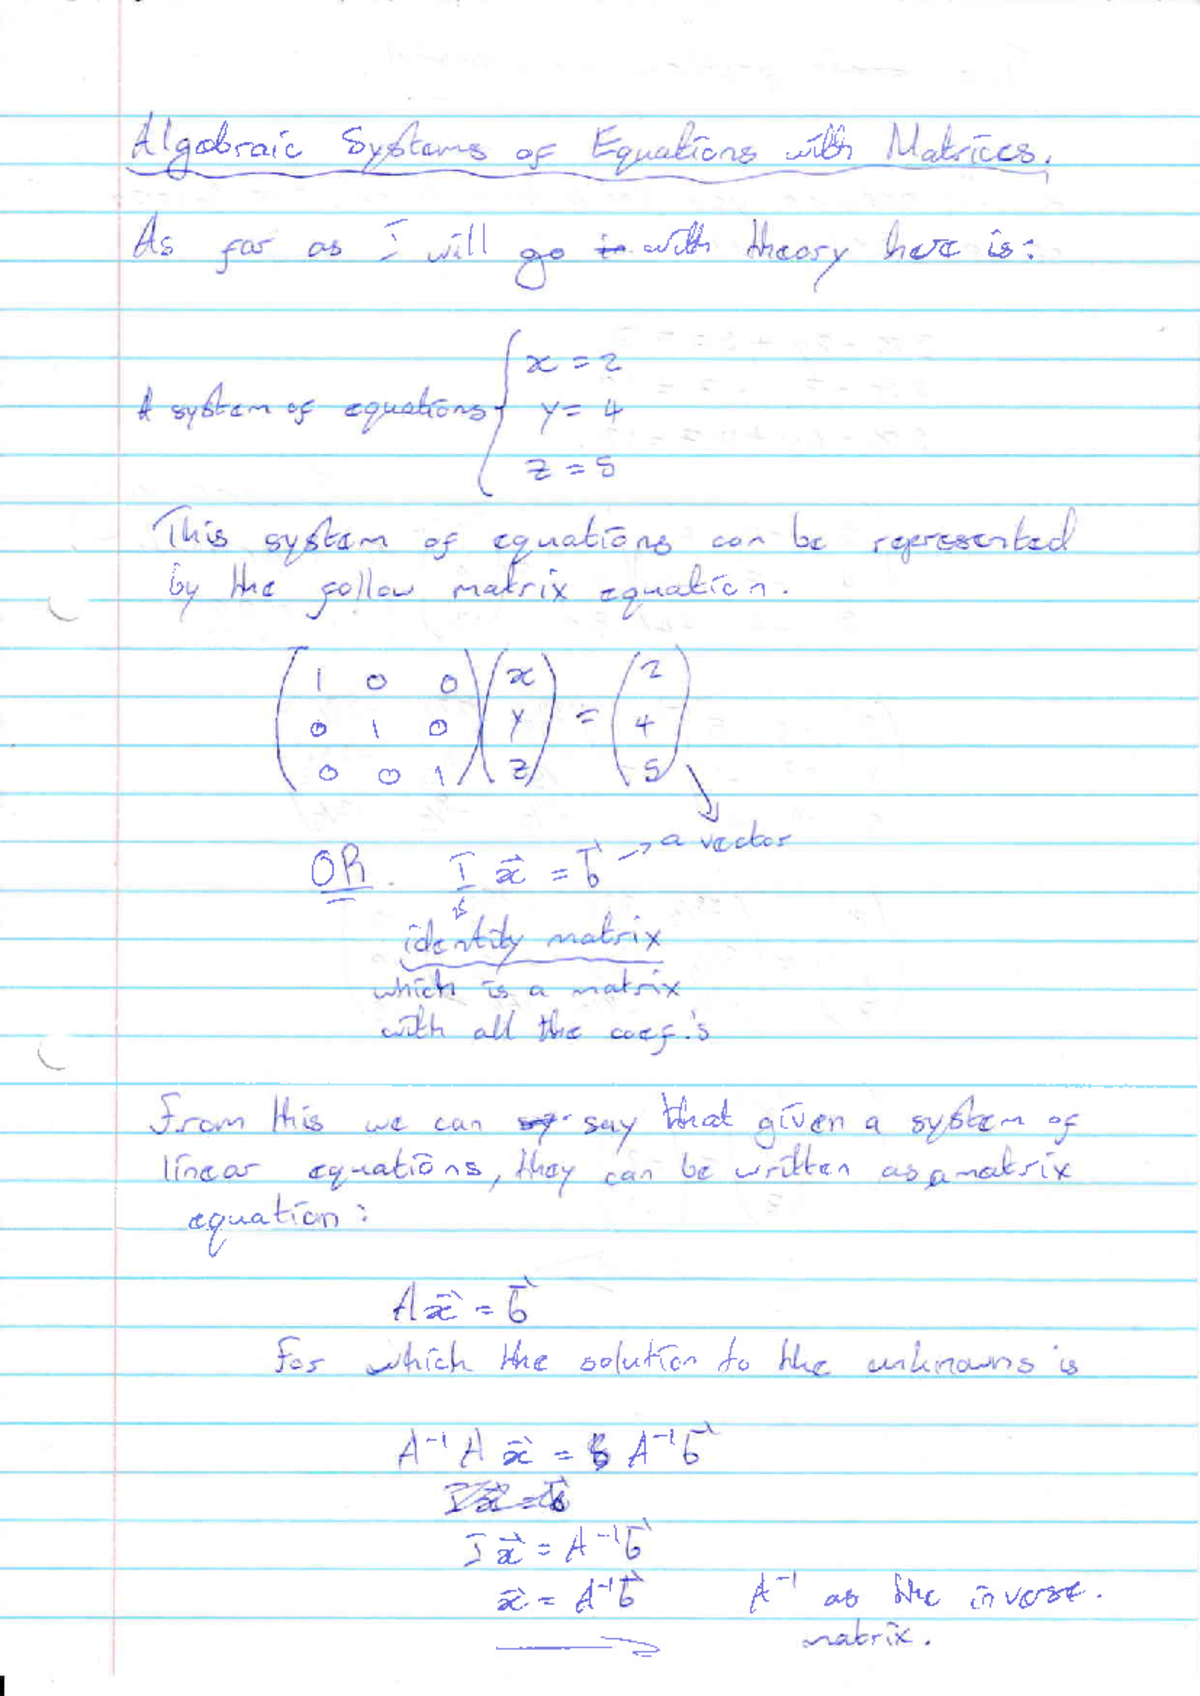 Algebraic Systems of Equations with Matrices.
As far as I will go with theory here is:
A system of equations { x = 2
y = 4
z = 5
This system of equations can be represented
by the follow matrix equation.
( 1 0 0 ) ( x ) = ( 2 )
( 0 1 0 ) ( y ) ( 4 )
( 0 0 1 ) ( z ) ( 5 )
→ a vector
OR. I x⃗ = b⃗
identity matrix
which is a matrix
with all the coef.'s
From this we can say that given a system of
linear equations, they can be written as a matrix
equation:
A x⃗ = b⃗
For which the solution to the unknowns is
A⁻¹ A x⃗ = A⁻¹ b⃗
I x⃗ = A⁻¹ b⃗
x⃗ = A⁻¹ b⃗ A⁻¹ as the inverse.
matrix.